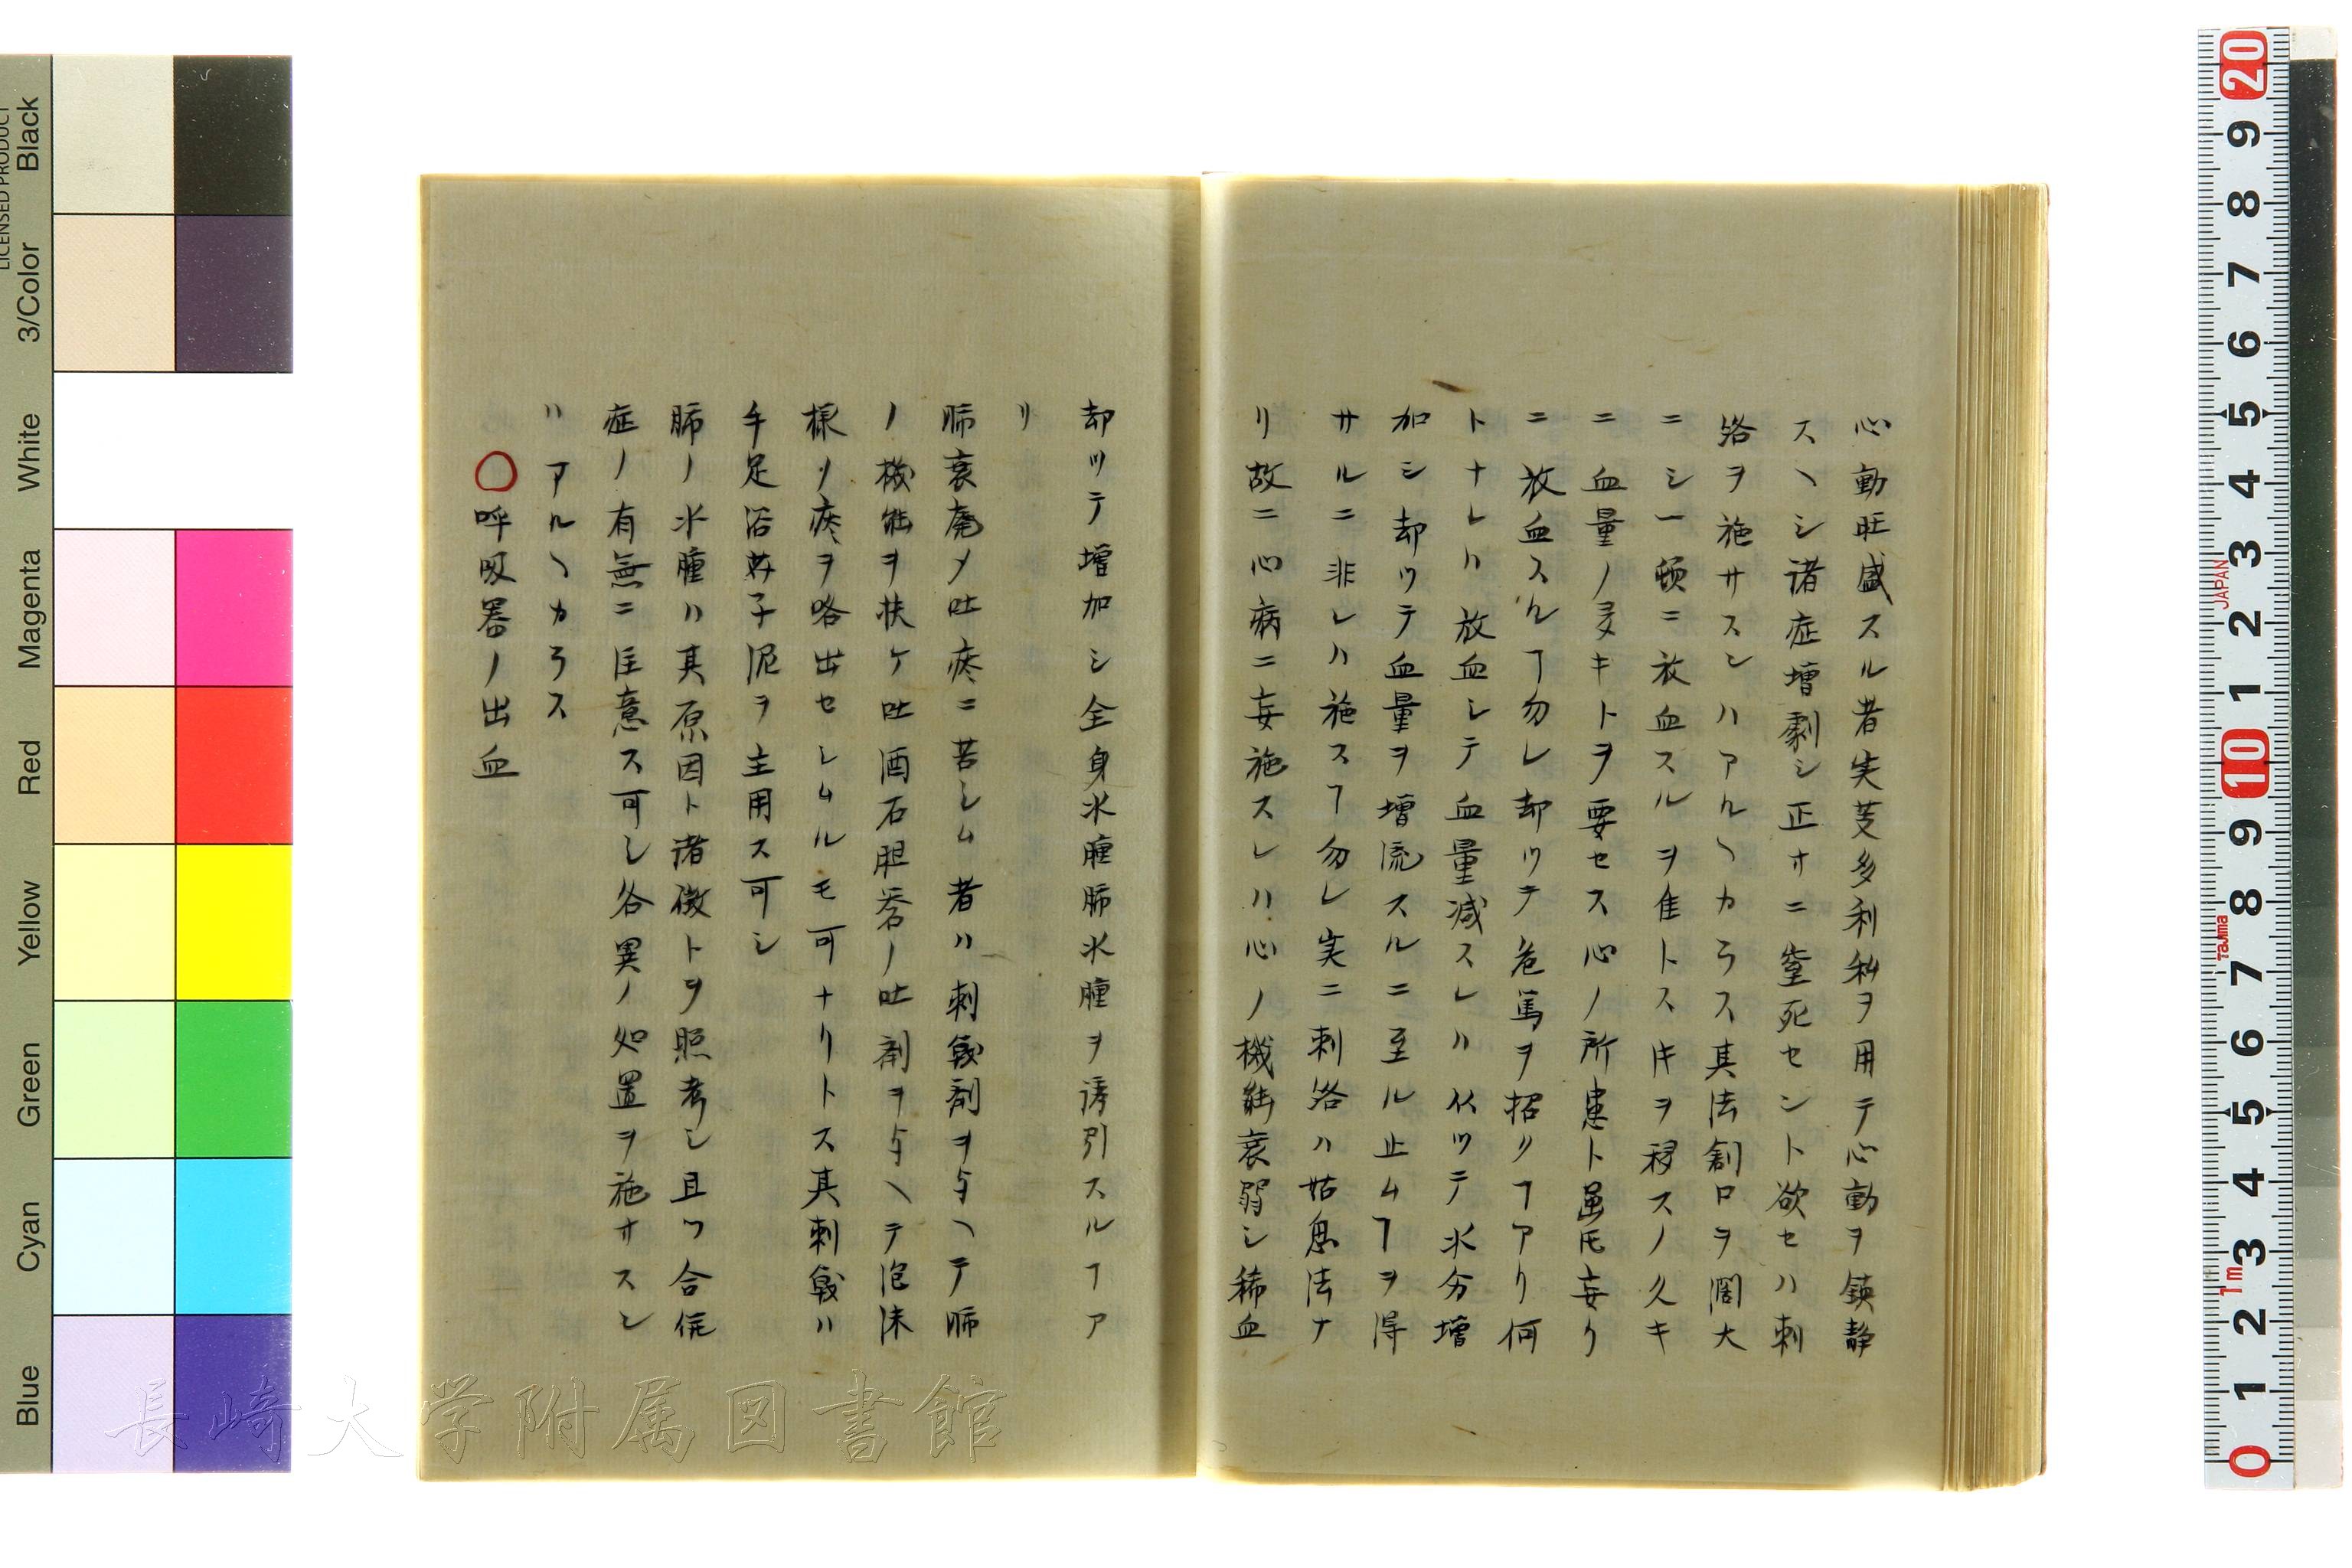 心動旺盛スル者実芰多利私ヲ用テ心動ヲ鎮静
スヘシ諸症増劇シ正サニ窒死セント欲セハ刺
絡ヲ施サスンハアルヘカラス其法創口ヲ濶大
ニシ一頓ニ放血スルヲ隹トス𪜈ヲ移スノ久キ
ニ血量ノ夛キトヲ要セス心ノ所患ト虽𪜈妄リ
ニ放血スルヿ勿レ却ツテ危篤ヲ招クヿアリ何
トナレハ放血シテ血量减スレハ从ツテ水分増
加シ却ツテ血量ヲ増流スルニ至ル止ムヿヲ得
サルニ非レハ施スヿ勿レ実ニ刺絡ハ姑息法ナ
リ故ニ心病ニ妄施スレハ心ノ機能衰弱シ稀血
却ツテ増加シ全身水腫肺水腫ヲ誘引スルヿア
リ
肺衰廃メ吐痰ニ苦シム者ハ刺戟剤ヲ与ヘテ肺
ノ機能ヲ扶ケ吐酒石胆礬ノ吐剤ヲ与ヘテ泡沫
様ノ痰ヲ咯出セシムルモ可ナリトス其刺戟ハ
手足浴芥子泥ヲ主用ス可シ
肺ノ水腫ハ其原因ト諸徴トヲ照考シ且ツ合併
症ノ有無ニ注意ス可シ各異ノ処置ヲ施サスン
ハアルヘカラス
〇呼吸器ノ出血
長崎大学附属図書館
Black
3/Color
White
Magenta
Red
Yellow
Green
Cyan
Blue
LICENSED PRODUCT
20
9
8
7
6
5
4
3
2
1
10
9
8
7
6
5
4
3
2
1
0
JAPAN
Tajima
1m